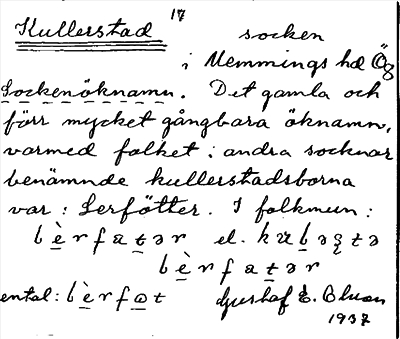 Kullerstad 17 socken
i Memmings hd Ög
Sockenöknamn. Det gamla och
förr mycket gångbara öknamn,
varmed folket i andra socknar
benämnde kullerstadsborna
var: Lerfötter. I folkmun:
lèrfætər el.
lèrfætər
ental: lèrfot Gustaf E.
1937